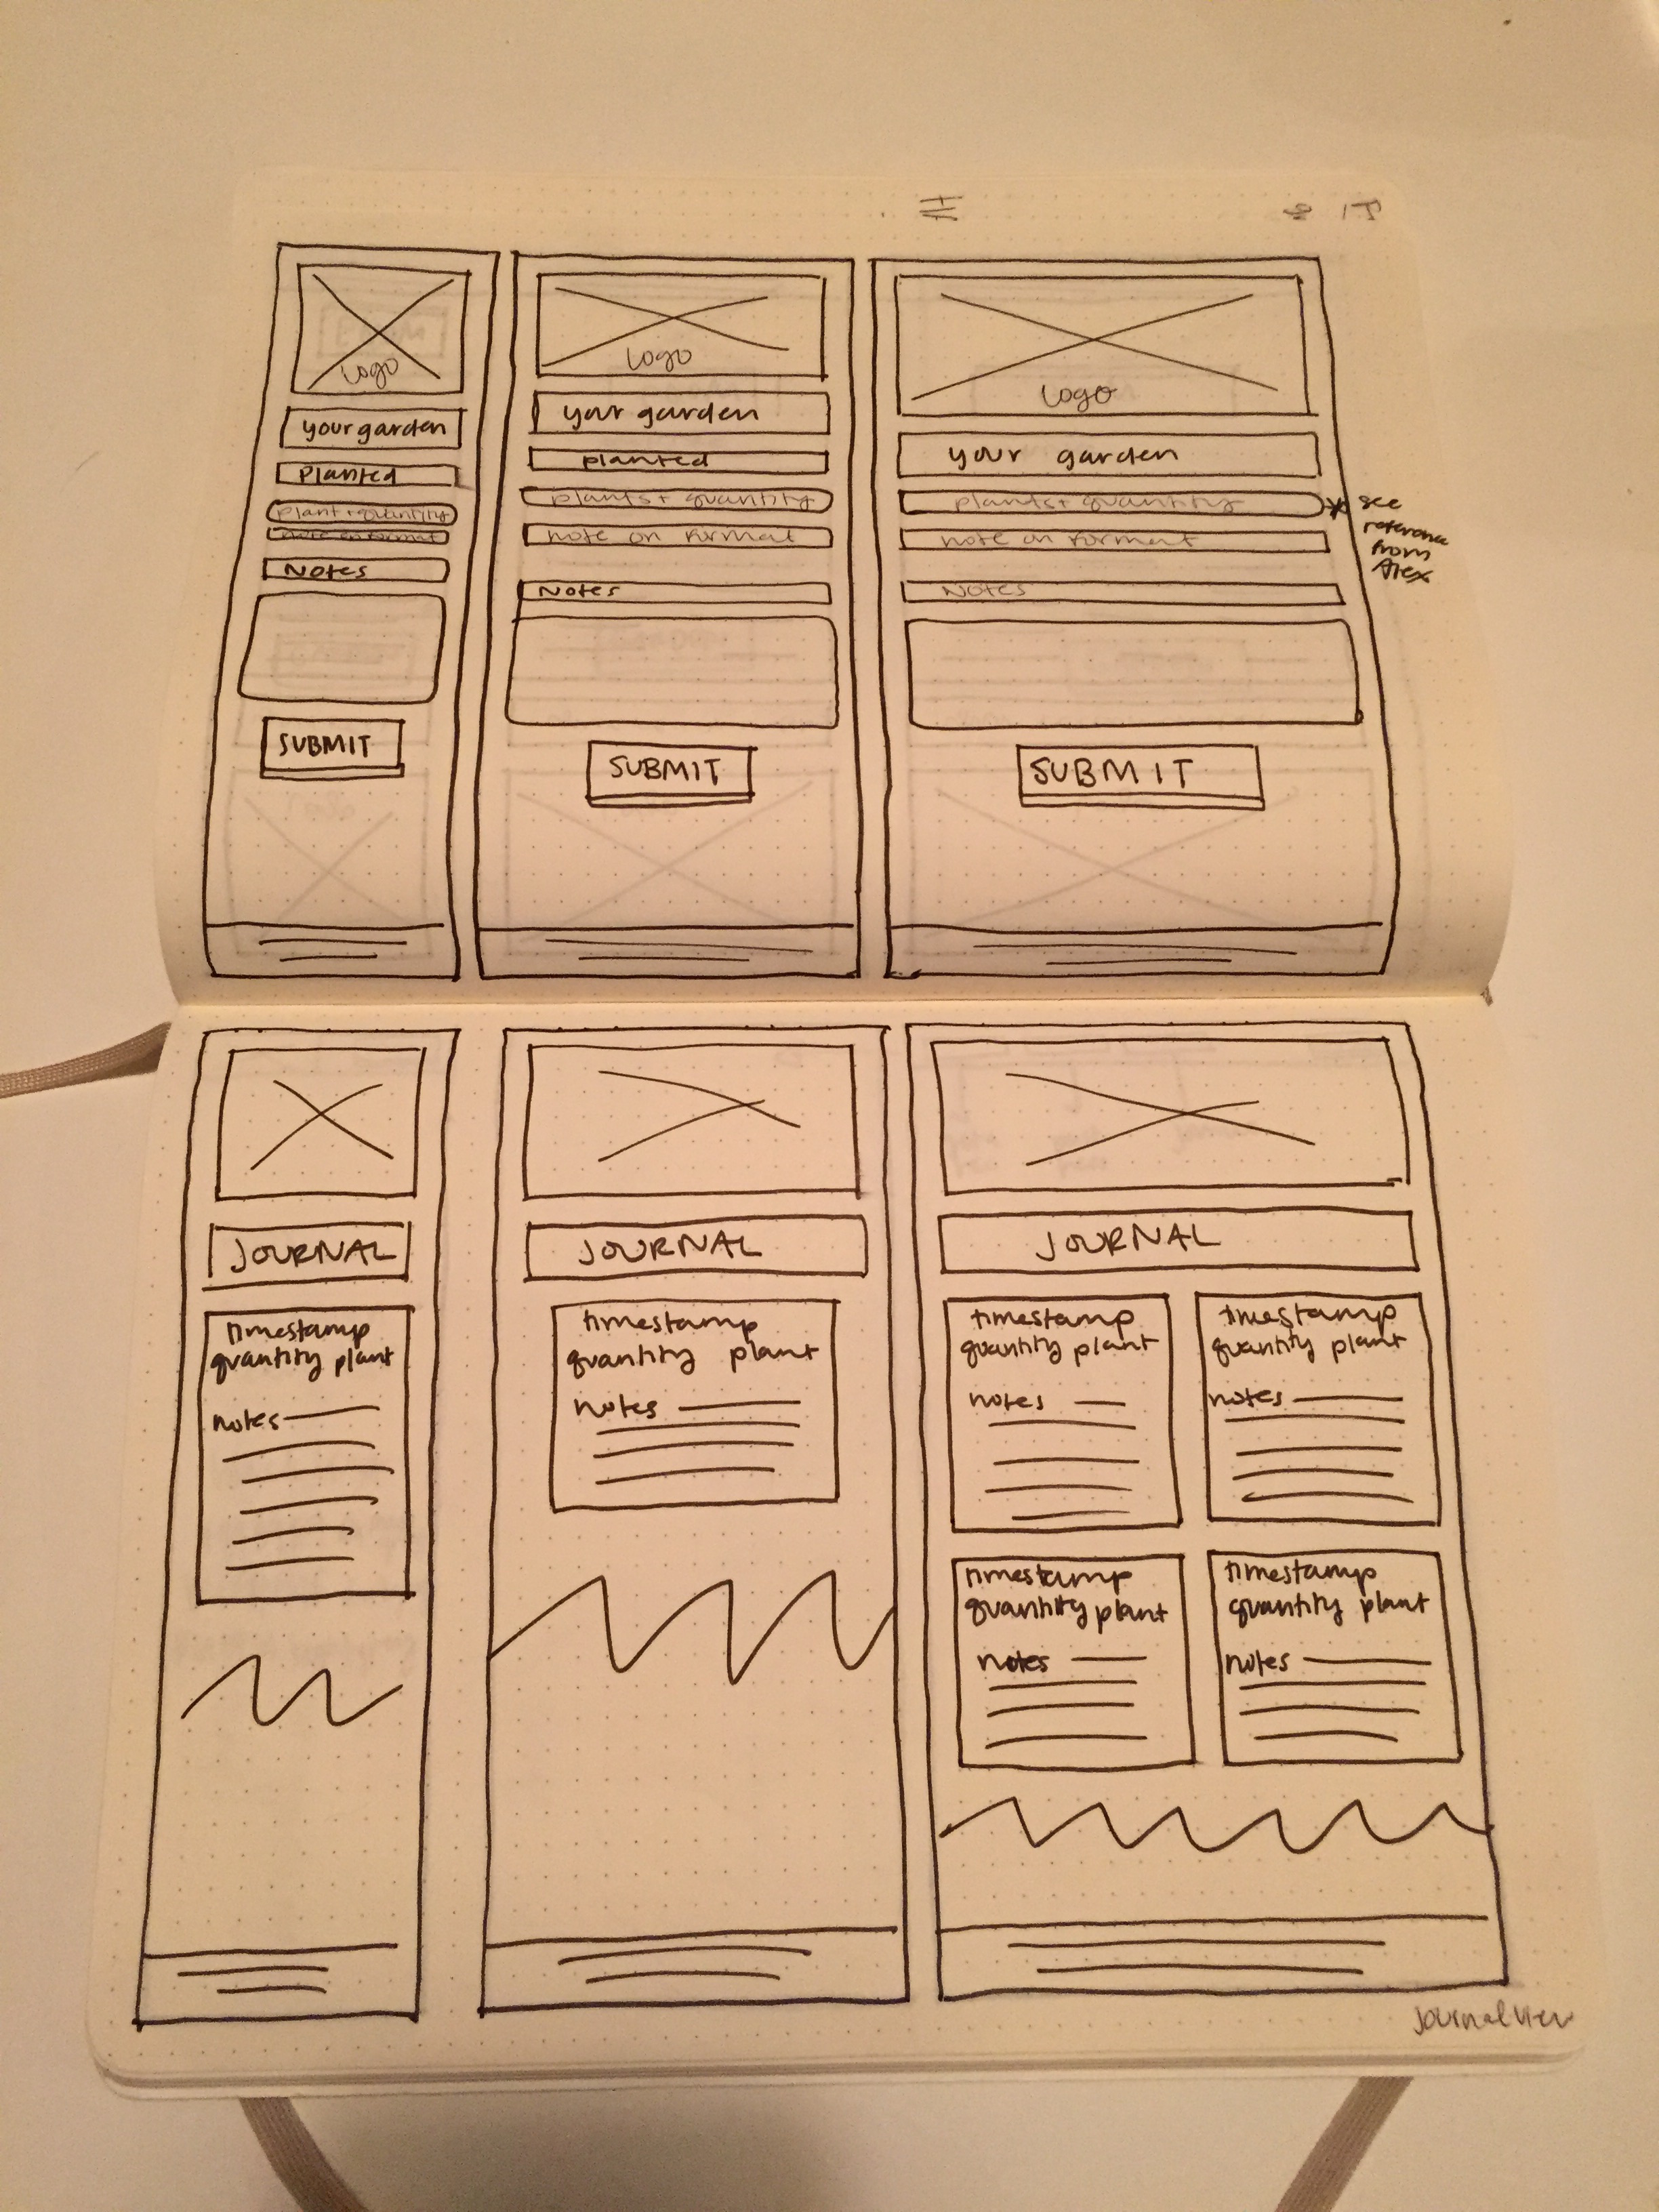 Logo
your garden
Planted
plant + quantity
note on format
Notes
SUBMIT
Logo
your garden
planted
plants + quantity
note on format
Notes
SUBMIT
Logo
your garden
plants + quantity
note on format
Notes
SUBMIT
* see
reference
from
Alex
JOURNAL
timestamp
quantity plant
notes
JOURNAL
timestamp
quantity plant
notes
JOURNAL
timestamp
quantity plant
notes
timestamp
quantity plant
notes
timestamp
quantity plant
notes
timestamp
quantity plant
notes
Journal View